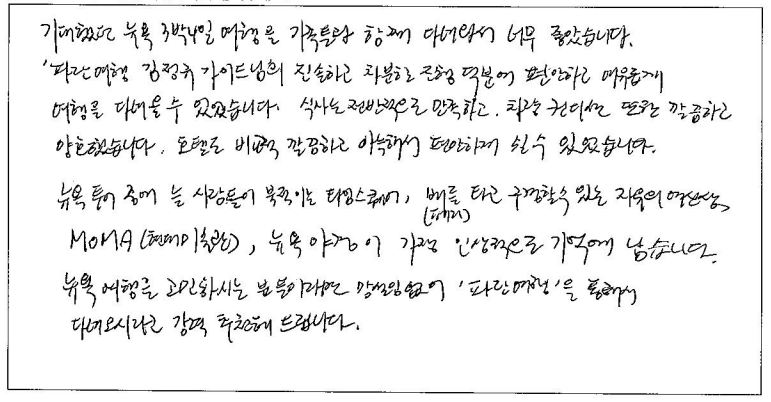 기대했던 뉴욕 3박4일 여행을 가족들과 함께 다녀와서 너무 좋았습니다.
'파란여행 김정귀 가이드님의 친숙하고 차분한 진행 덕분에 편안하고 여유롭게
여행을 다녀올 수 있었습니다. 식사는 전반적으로 만족하고, 차량 컨디션 또한 깔끔하고
양호했습니다. 호텔도 비교적 깔끔하고 아늑해서 편안하게 쉴 수 있었습니다.
뉴욕 투어 중에 늘 사람들이 북적이는 타임스퀘어, 배를 타고 구경할 수 있는 자유의 여신상,
(페리)
MOMA (현대미술관), 뉴욕 야경이 가장 인상적으로 기억에 남습니다.
뉴욕 여행을 고민하시는 분들이라면 망설임없이 '파란여행'을 통해서
다녀오시라고 강력 추천해 드립니다.